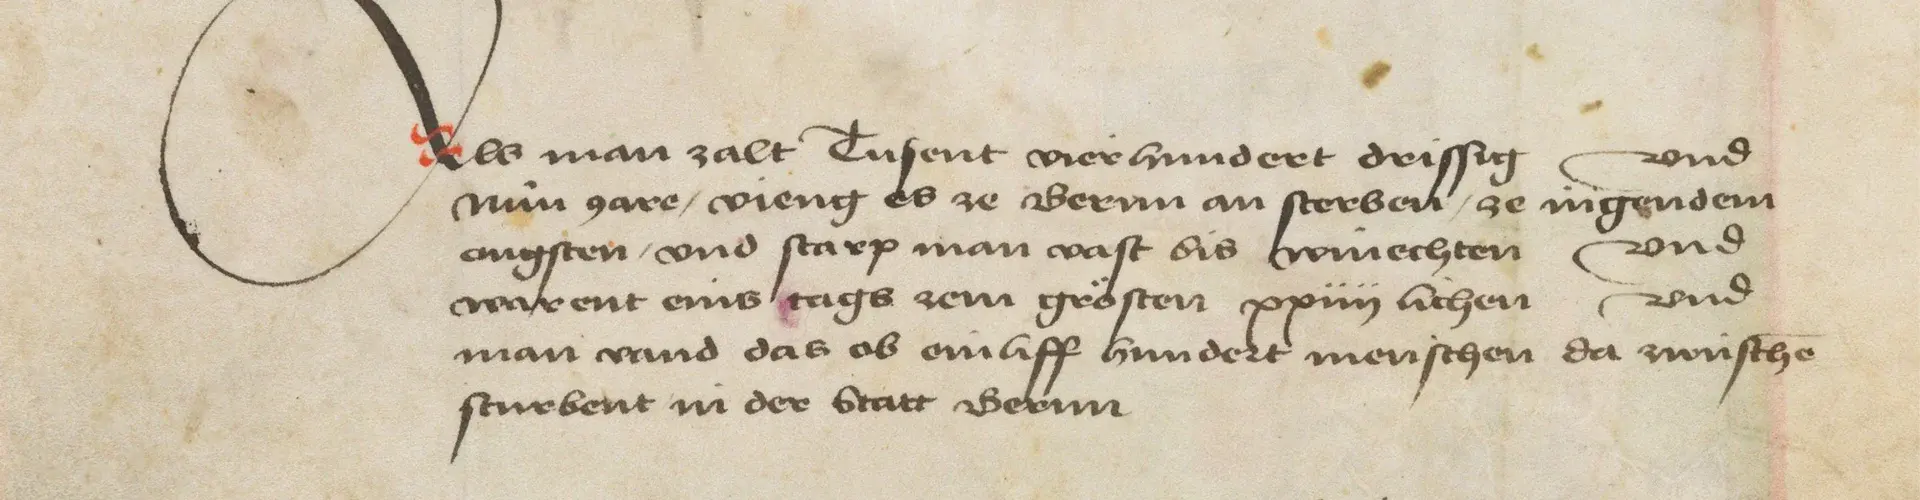 Als man zalt Tusent vierhundert drissig vnd
Nún Jare / vieng es ze Bernn an sterben / ze ingendem
ougsten / vnd starp man vast bis winechten vnd
warent eins tags zem grösten xxiiij lichen vnd
man vand das ob einliff hundert menschen da zwüschē
sturbent in der Statt Bernn